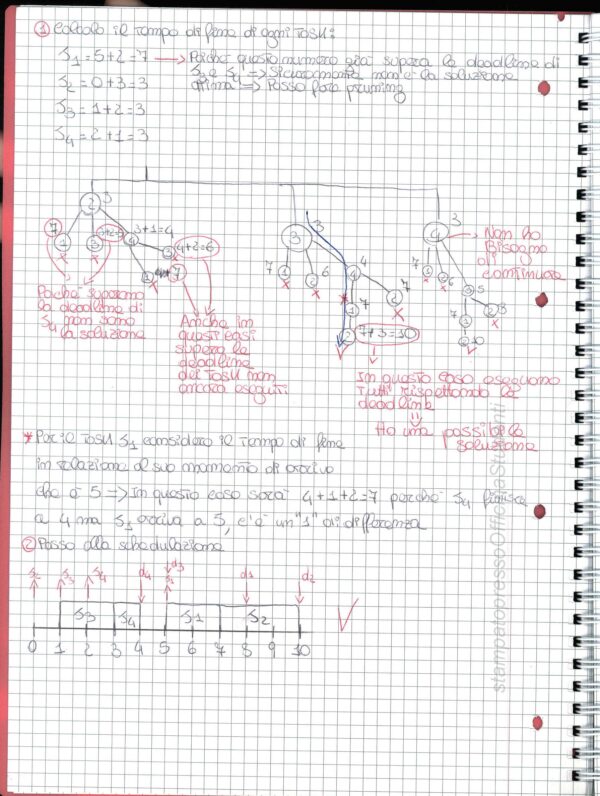 ① Calcolo il tempo di fine di ogni task:
S1 = 5+2 = 7 → Poiché questo numero già supera la deadline di
S3 e S4 => Sicuramente non è la soluzione
S2 = 0+3 = 3 ottima => Posso fare pruning
S3 = 1+2 = 3
S4 = 2+1 = 3
2 3
3 3
4 3
7 1
3 3+2=5
4 3+1=4
4+2=6
7
7 1
2 6
4 4
1 7
2 7
7+3=10
7 1
2 6
3 5
7 1
2 8
2 10
Non ho
bisogno
di
continuare
Poiché superano
la deadline di
S4 non sono
la soluzione
Anche in
questi casi
supera la
deadline
dei task non
ancora eseguiti
In questo caso eseguiamo
tutti rispettando le
deadline
Ho una possibile
soluzione
* Per il task S1 considero il tempo di fine
in relazione al suo momento di arrivo
che è 5 => In questo caso sarà 4+1+2=7 perché S4 finisce
a 4 ma S1 arriva a 5, c'è un "1" di differenza
② Passo alla schedulazione
S2 S3 S4 d4 d3 S1 d1 d2
S3 S4 S1 S2
0 1 2 3 4 5 6 7 8 9 10
stampatopressoOfficinaStudenti